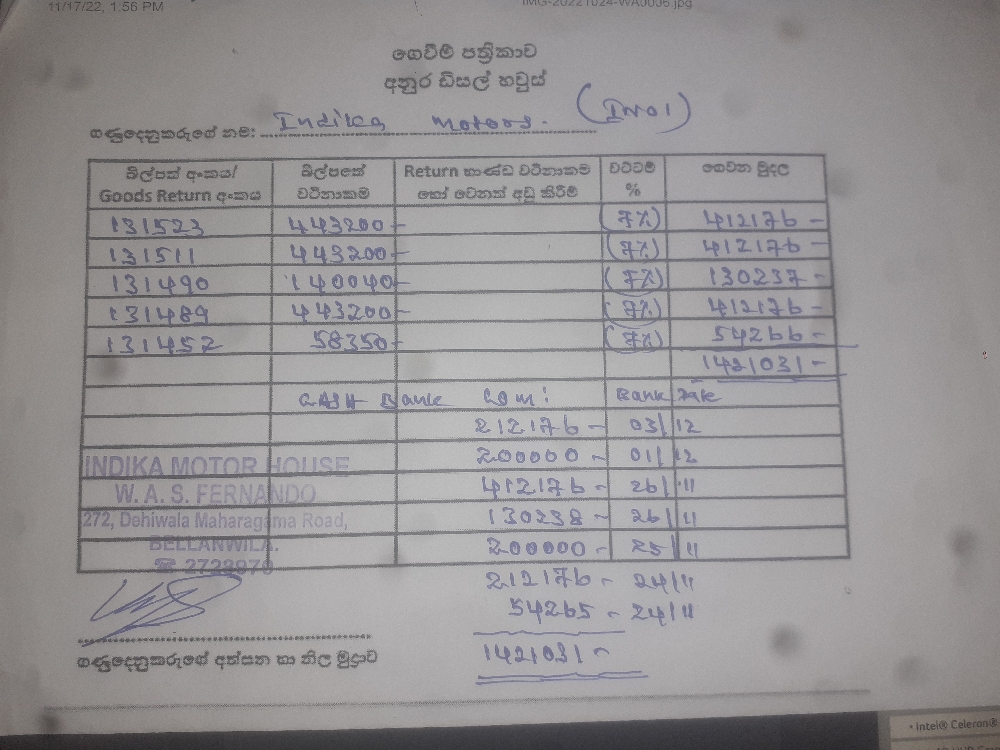 11/17/22, 1:56 PM IMG-20221024-WA0006.jpg
ගෙවීම් පත්‍රිකාව
අනුර ඩීසල් හවුස්
ගණුදෙනුකරුගේ නම: Indika Motors. (IM01)
බිල්පත් අංකය/ බිල්පතේ Return භාණ්ඩ වටිනාකම වට්ටම් ගෙවන මුදල
Goods Return අංකය වටිනාකම හෝ වෙනත් අඩු කිරීම් %
131523 443200- (7%) 412176-
131511 443200- (7%) 412176-
131490 140040- (7%) 130237-
131489 443200- (7%) 412176-
131452 58350- (7%) 54266-
1421031-
CASH Bank Com: Bank Date
212176- 03/12
200000- 01/12
412176- 26/11
130238- 26/11
200000- 25/11
212176- 24/11
54265- 24/11
1421031-
INDIKA MOTOR HOUSE
W. A. S. FERNANDO
272, Dehiwala Maharagama Road,
BELLANWILA.
☎ 2728970
ගණුදෙනුකරුගේ අත්සන හා නිල මුද්‍රාව
• Intel® Celeron®